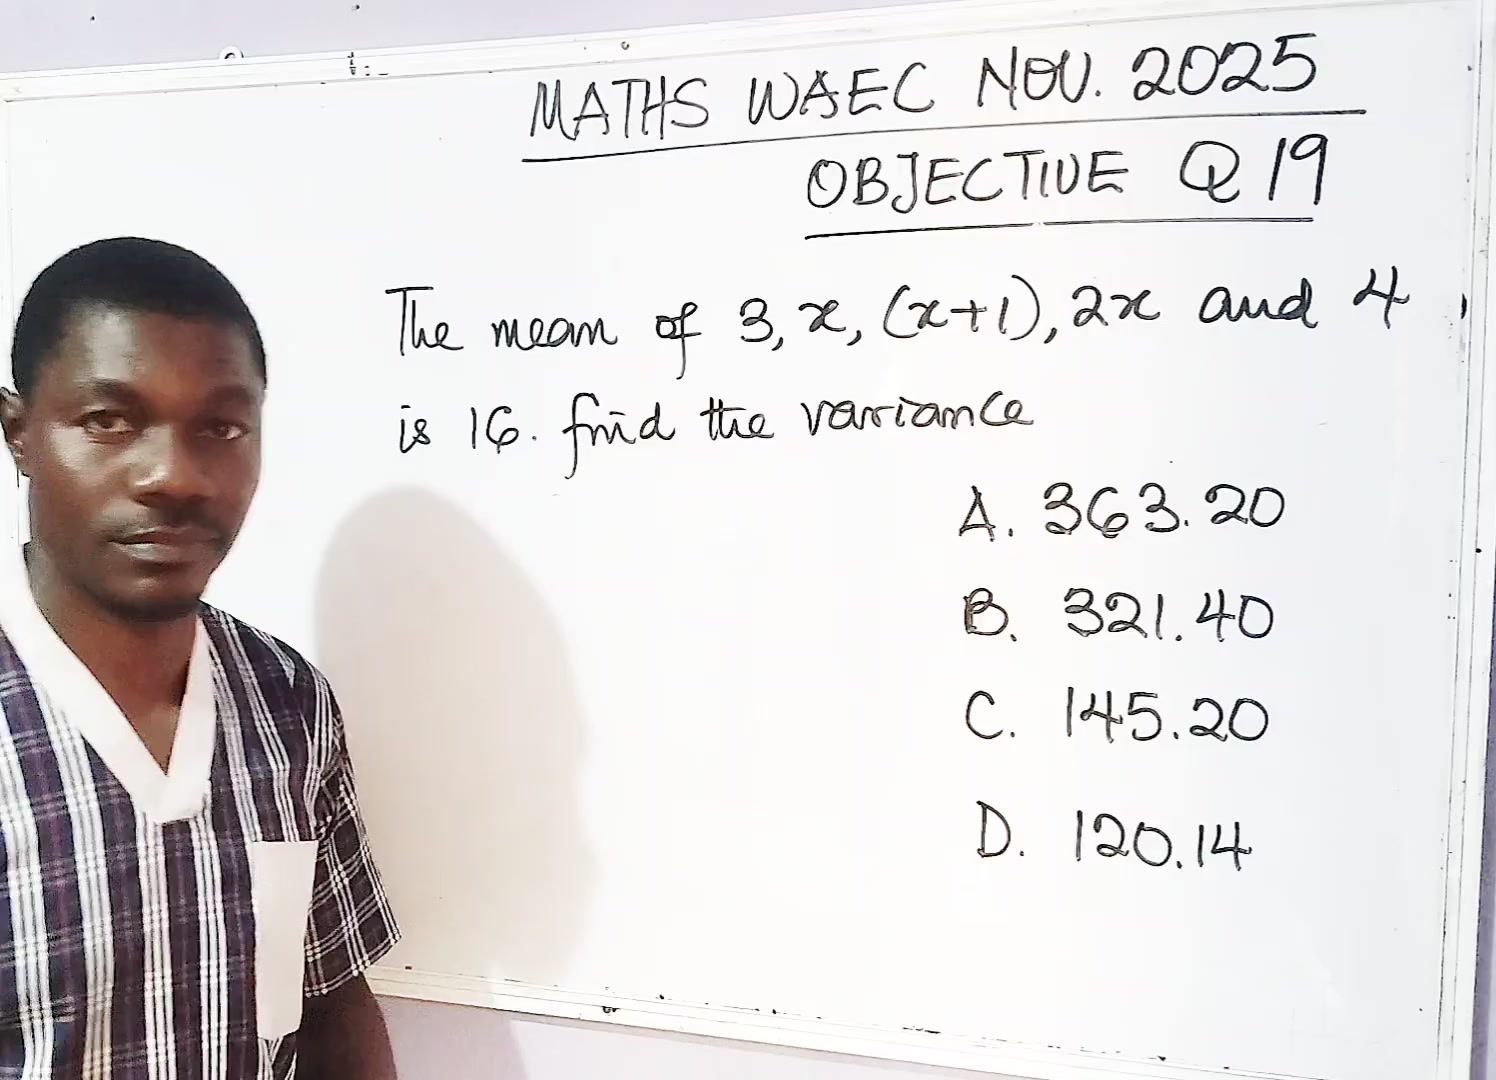 MATHS WAEC NOV. 2025
OBJECTIVE Q19
The mean of 3, x, (x+1), 2x and 4
is 16. find the variance
A. 363.20
B. 321.40
C. 145.20
D. 120.14